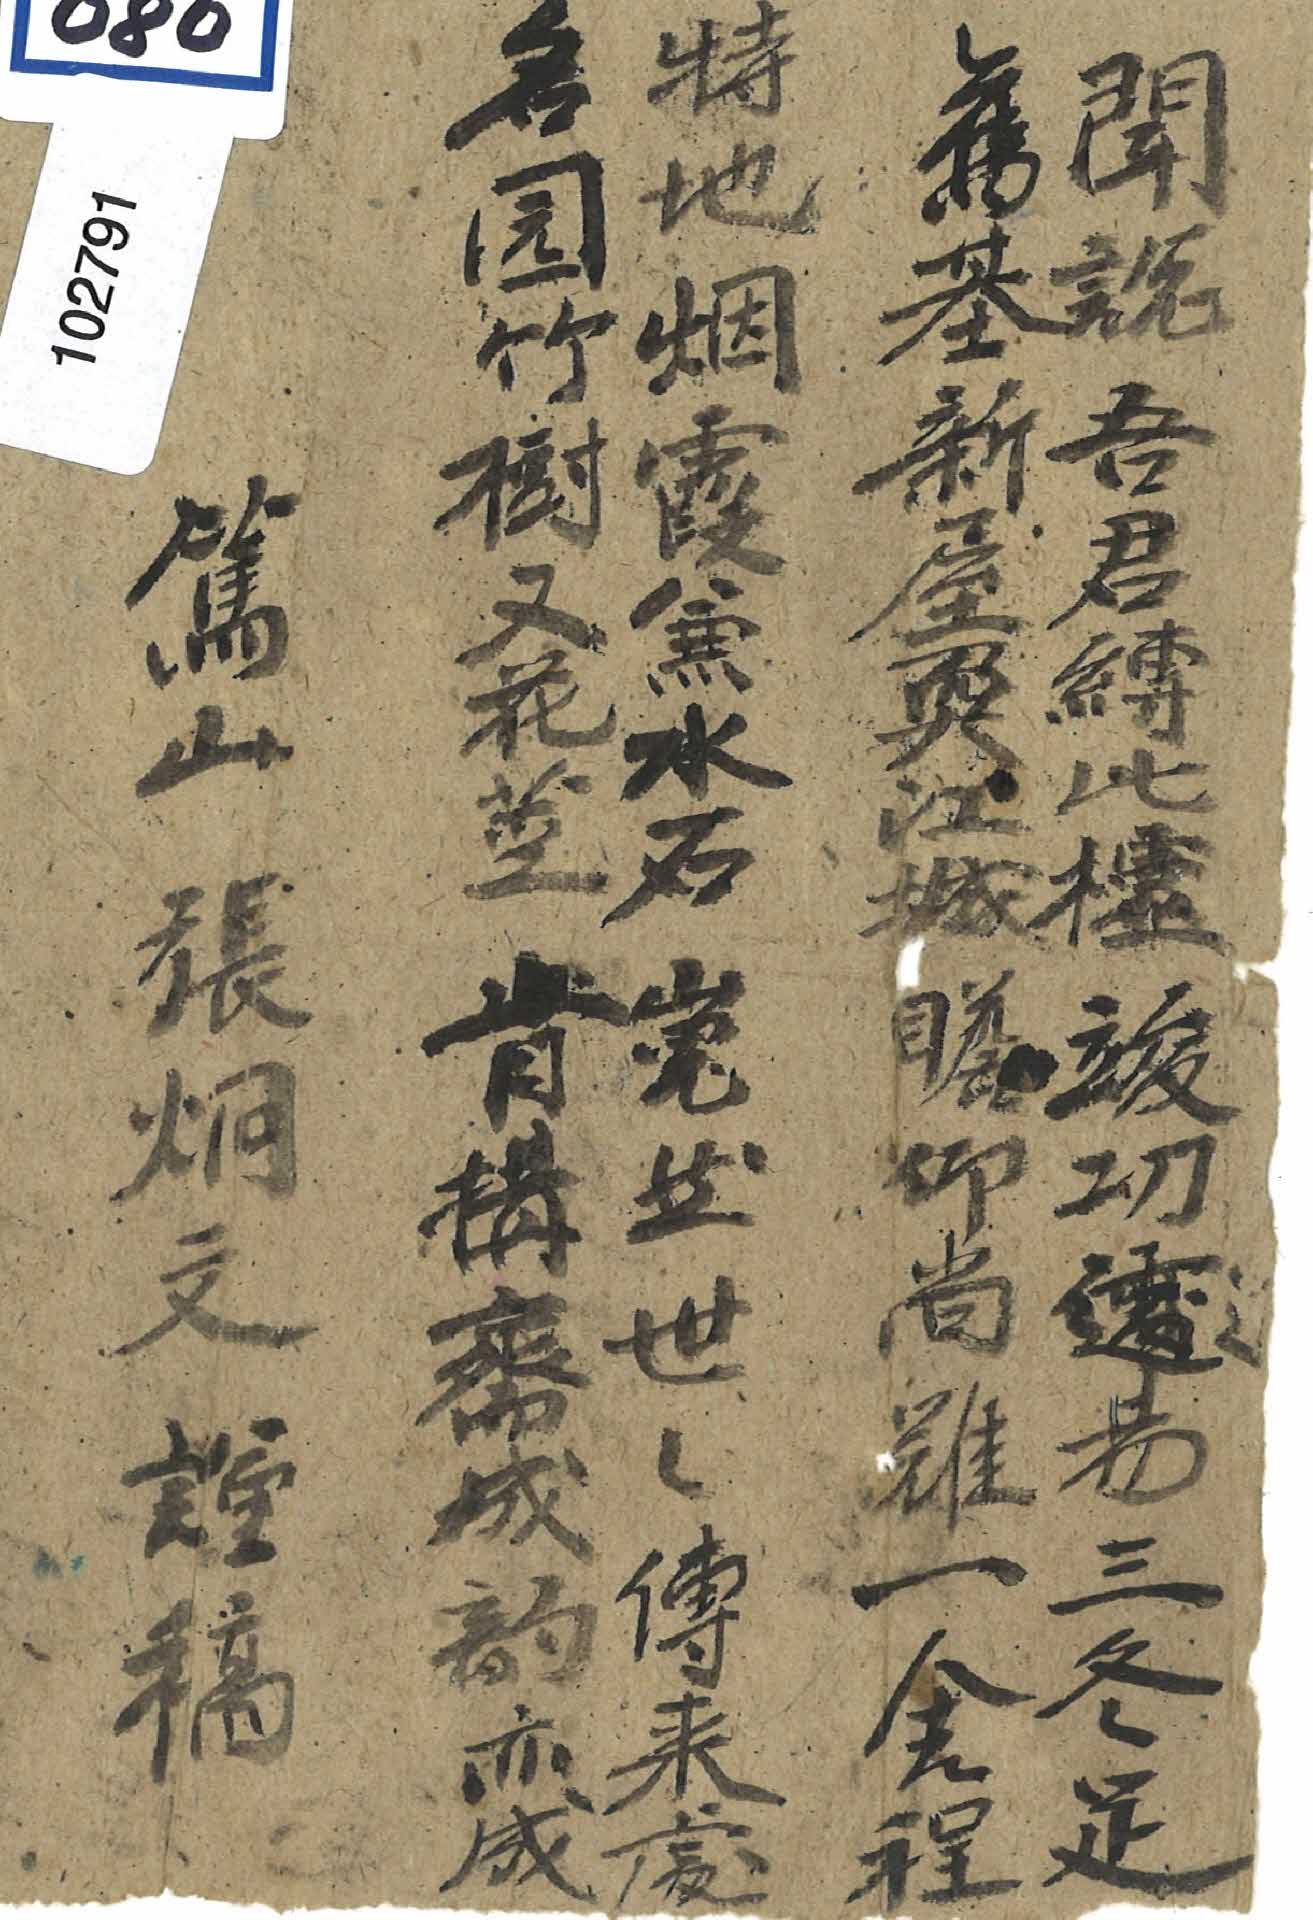 聞說吾君縛此楹 竣功還易三冬足
舊基新屋奐江城 瞻仰尚難一舍程
特地烟霞兼水石 然世〻傳来處
名园竹樹又花莖 肯構齋成韵亦成
篤山 張炯文 謹稿
080
102791